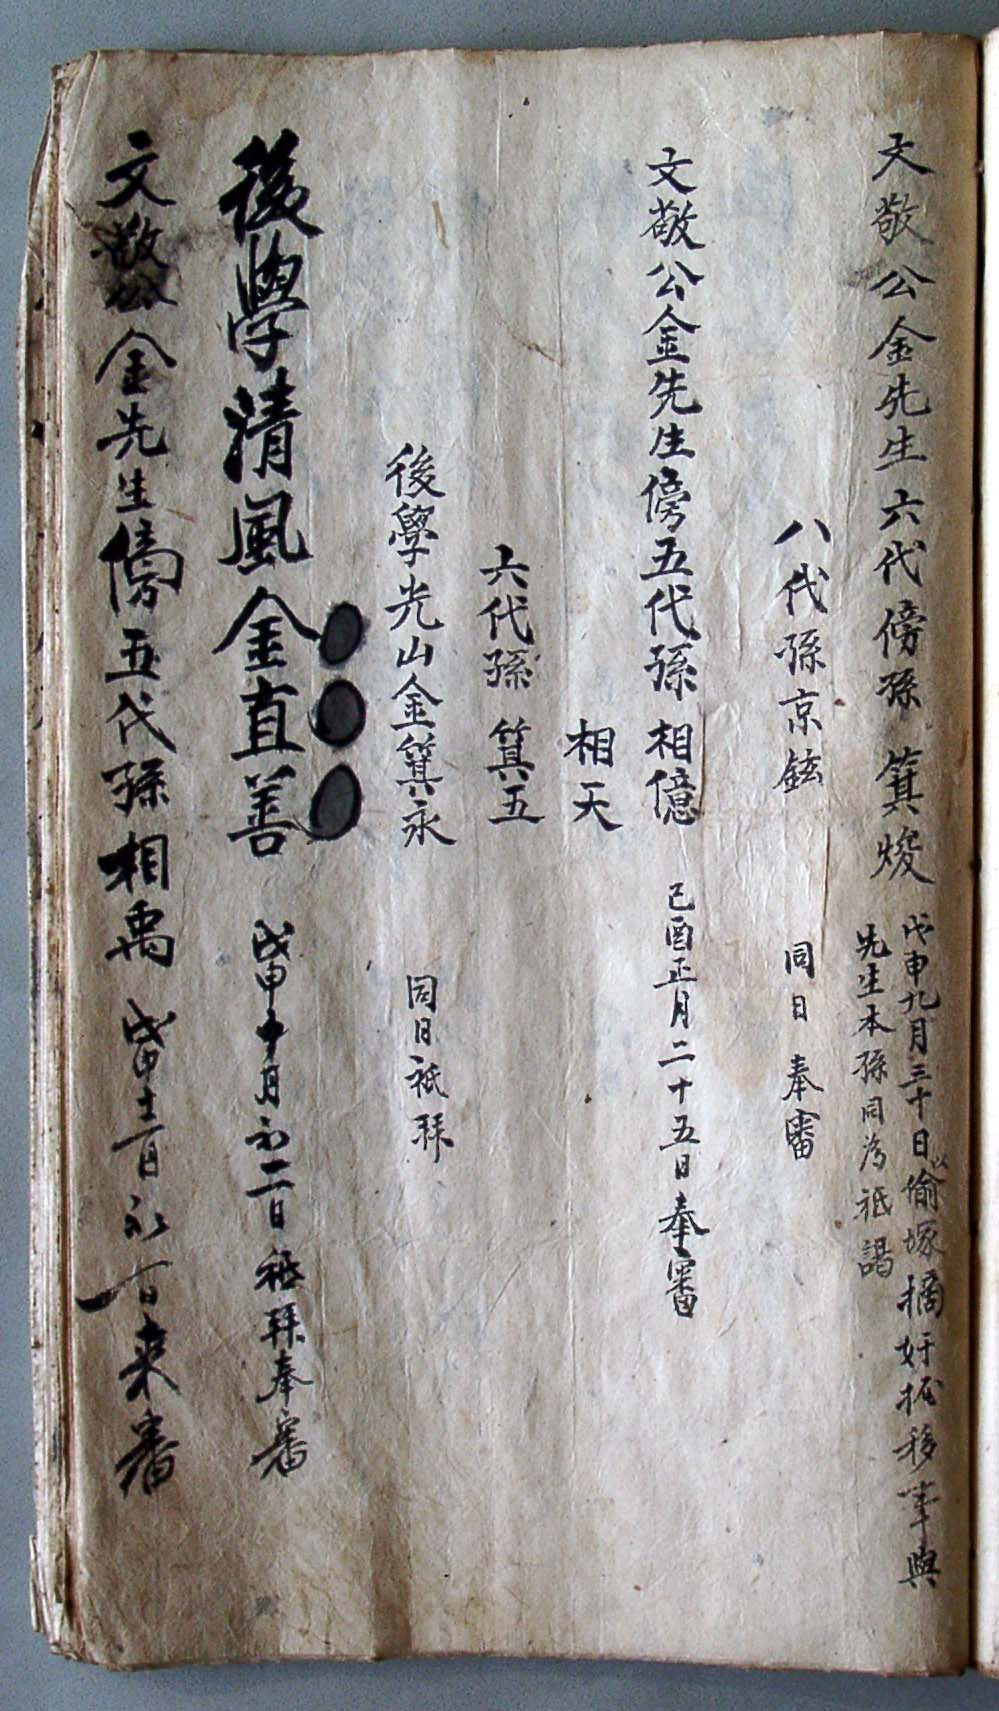 文敬公金先生六代傍孫 箕焌 戊申九月三十日以偷塚摘奸掘移事與
先生本孫同爲祗謁
八代孫京鉉 同日奉審
文敬公金先生傍五代孫相億 己酉正月二十五日奉審
相天
六代孫 箕五
後學光山金箕永 同日祗拜
後學清風金直善 戊申十月初二日祗拜奉審
文敬公金先生傍五代孫相禹 戊申十二月初一日來審